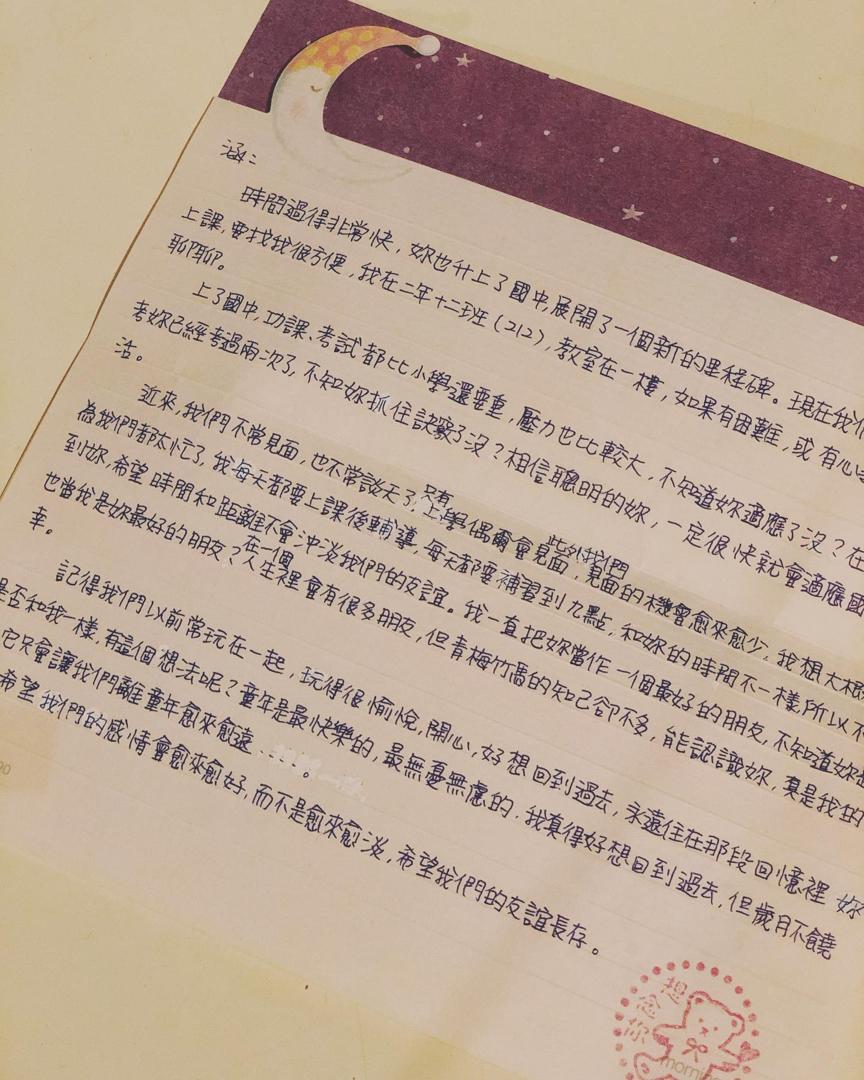 涵：
時間過得非常快，妳也升上了國中,展開了一個新的里程碑。現在我
上課，要找我很方便，我在二年十二班(212)，教室在一樓，如果有困難，或有心
聊聊。
上了國中,功課、考試都比小學還要重，壓力也比較大，不知道妳適應了沒？在
考妳已經考過兩次了，不知妳抓住訣竅了沒？相信聰明的妳，一定很快就會適應國
活。
近來，我們不常見面，也不常談天了，只有上學偶爾會見面，此外我們見面的機會愈來愈少，我想大概
為我們都太忙了，我每天都要上課後輔導，每天都要補習到九點，和妳的時間不一樣所以不
到妳，希望時間和距離不會沖淡我們的友誼。我一直把妳當作一個最好的朋友，不知道妳
也當我是妳最好的朋友？在一個人生裡會有很多朋友，但青梅竹馬的知己卻不多，能認識妳，真是我的
幸。
記得我們以前常玩在一起，玩得很愉悅，開心，好想回到過去，永遠住在那段回憶裡 妳
是否和我一樣，有這個想法呢？童年是最快樂的，最無憂無慮的，我真得好想回到過去，但歲月不饒
它只會讓我們離童年愈來愈遠。
希望我們的感情會愈來愈好，而不是愈來愈淡，希望我們的友誼長存。
想念你